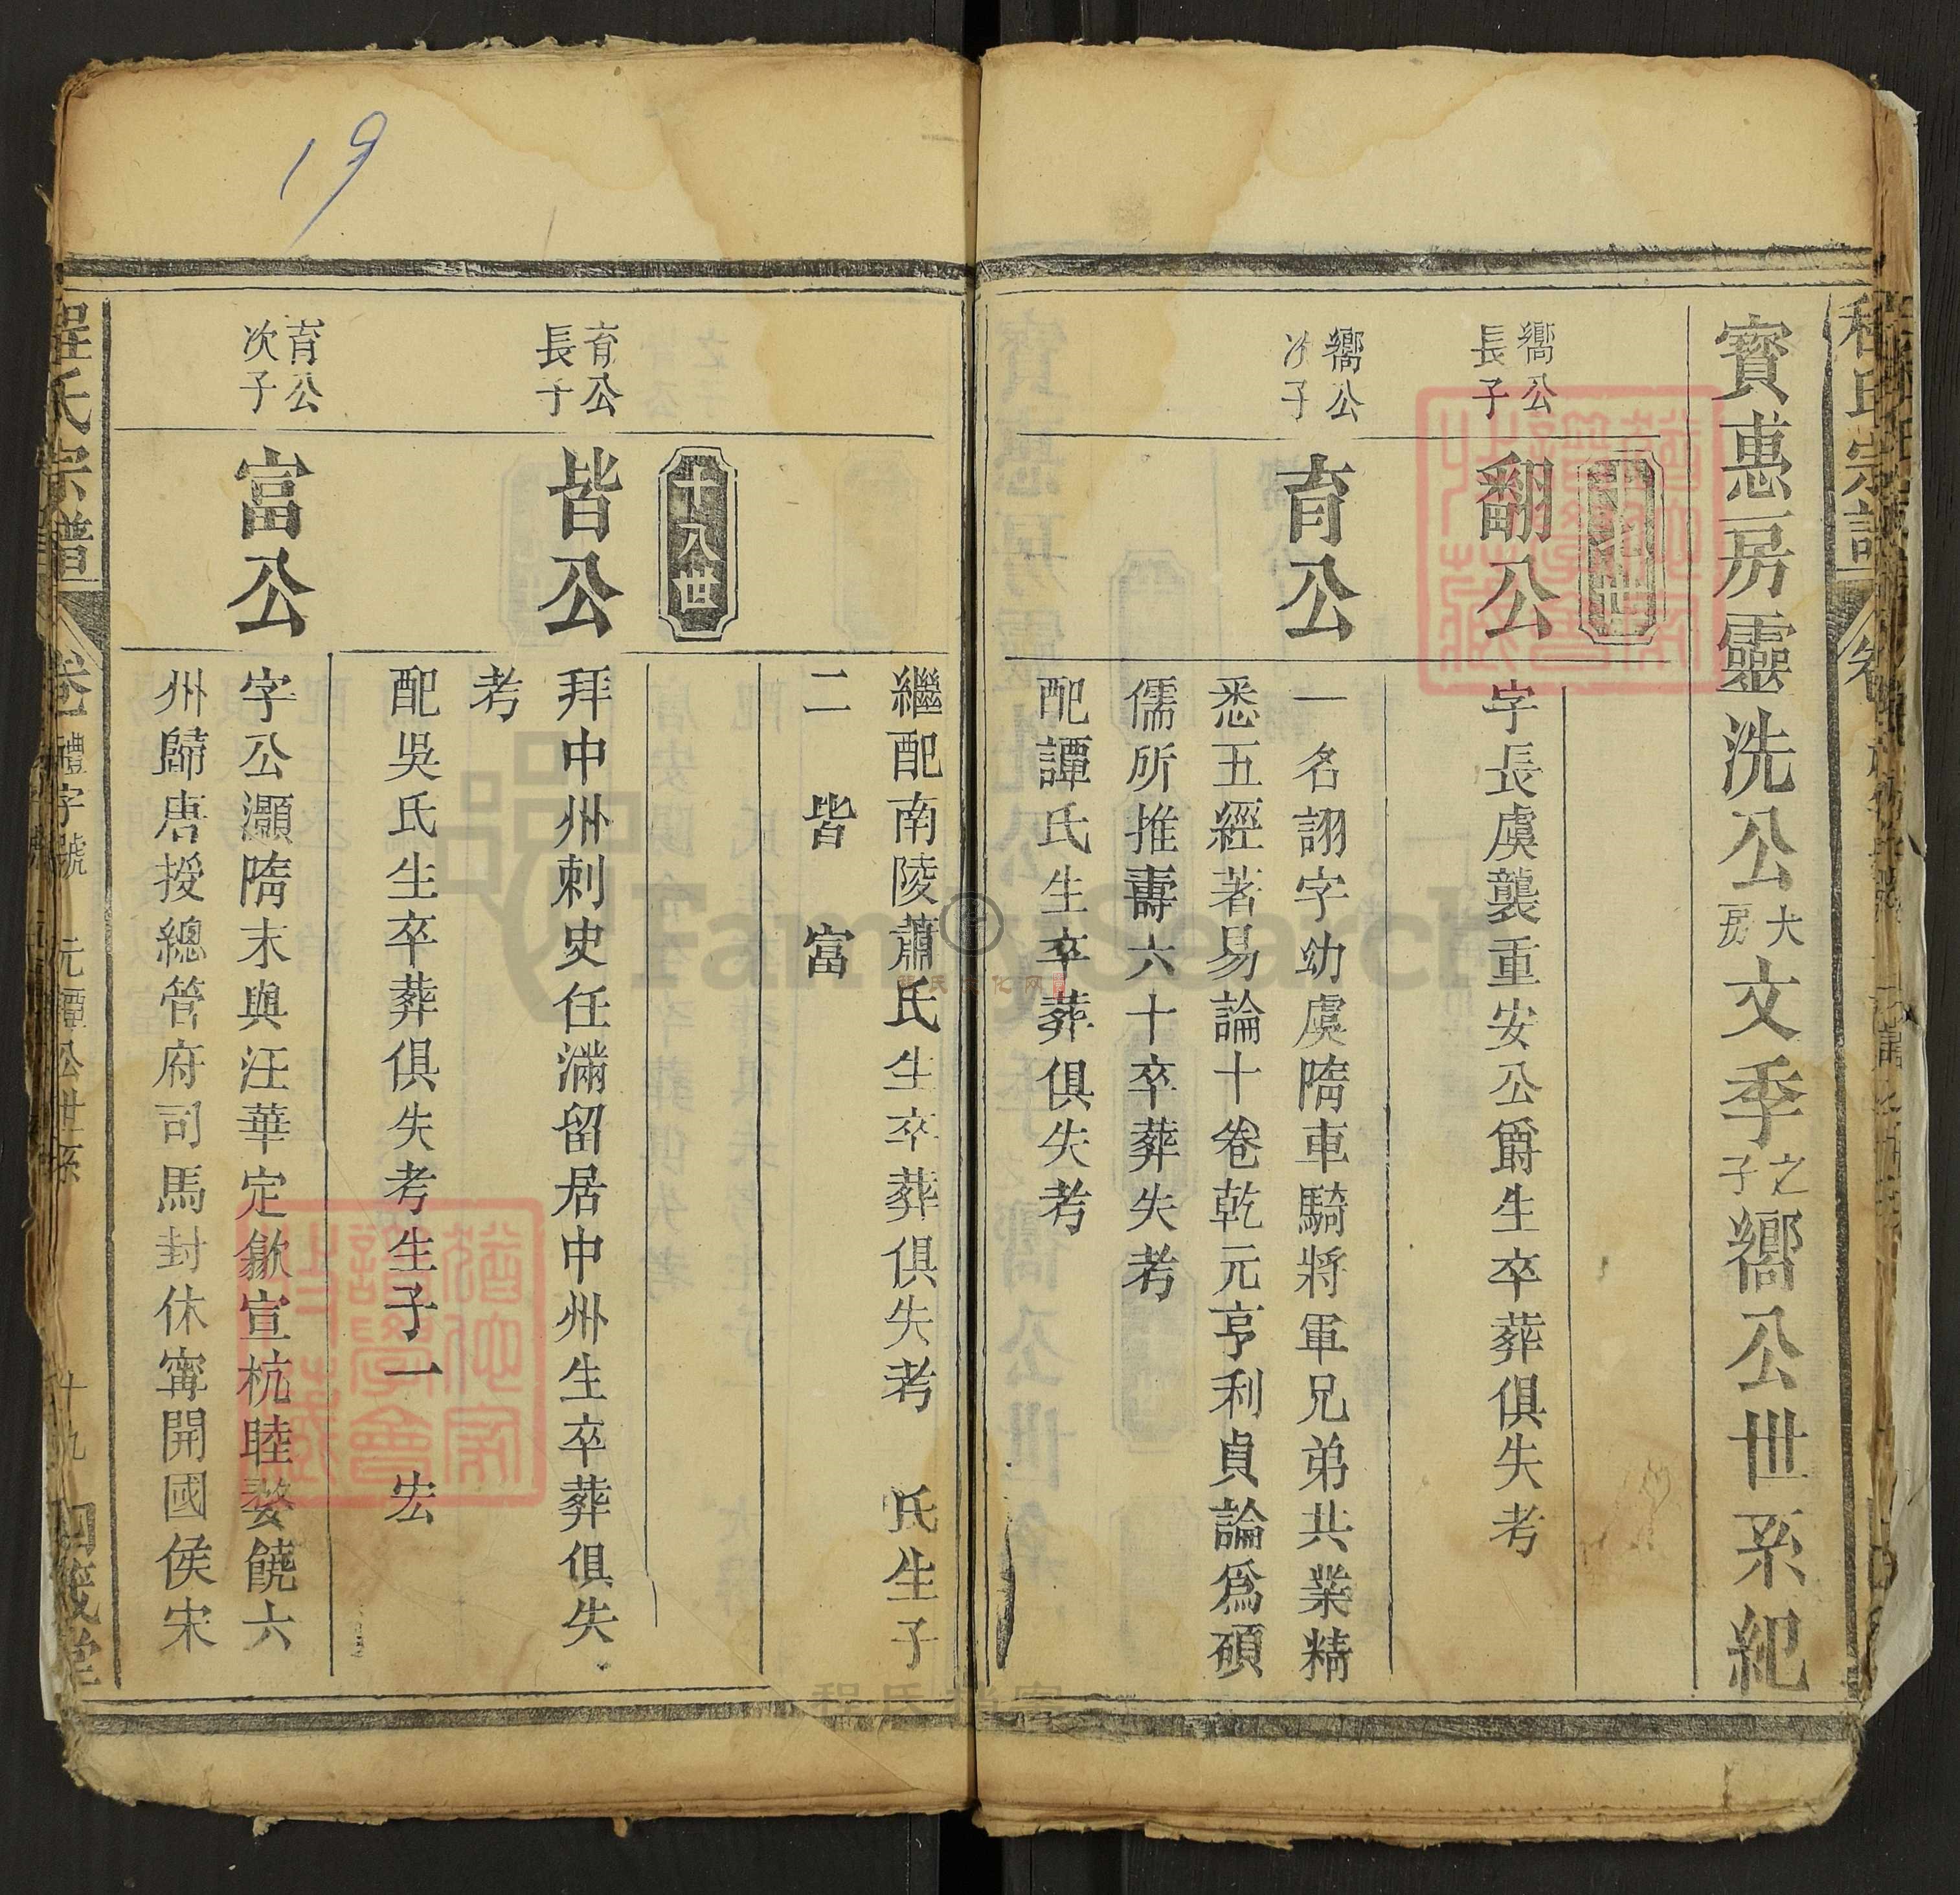 寶惠房靈洗公大房文季之子嚮公世系紀
十七世
嚮公長子
翻公
字長虞襲重安公爵生卒葬俱失考
嚮公次子
育公
一名詡字幼虞隋車騎將軍兄弟共業精
悉五經著易論十卷乾元亨利貞論爲碩
儒所推壽六十卒葬失考
配譚氏生卒葬俱失考
繼配南陵蕭氏生卒葬俱失考 氏生子
二 皆 富
十八世
育公長子
皆公
拜中州刺史任滿留居中州生卒葬俱失
考
配吳氏生卒葬俱失考生子一 宏
育公次子
富公
字公灝隋末與汪華定歙宣杭睦婺饒六
州歸唐授總管府司馬封休甯開國侯宋
程氏宗譜 卷一 禮字號 元譚公世系 十九
19
FamilySearch